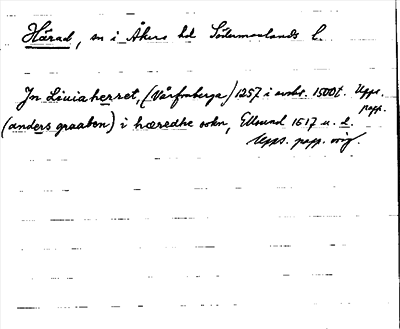 Härad, sn i Åkers hd Södermanlands l.
Jn Liuiaherret, (Vårfruberga) 1257 i avskr. 1500t. Upps. papp.
(anders graaben) i hæredhe sokn, Ellsund 1517 u. d.
Upps. papp. orig.